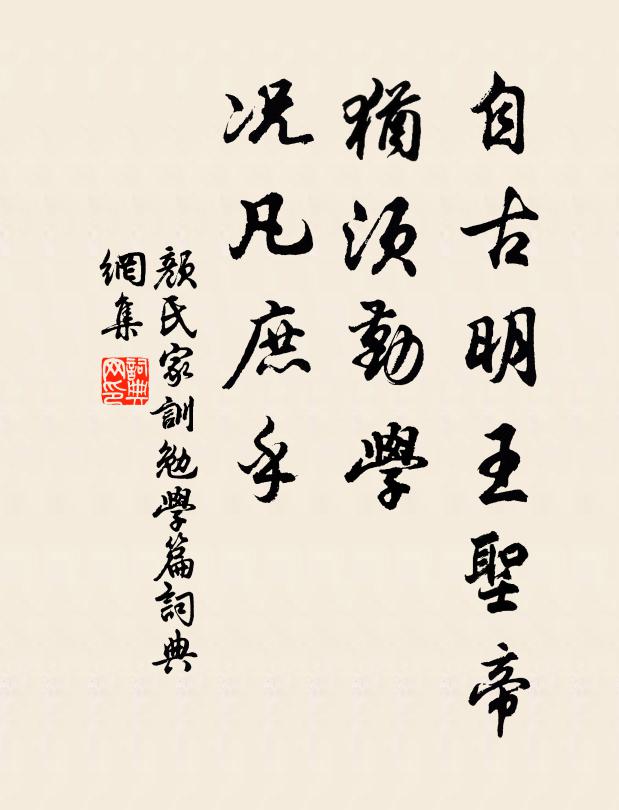 自古明王聖帝
猶須勤學
況凡庶乎
顏氏家訓勉學篇詞典
網集
詞典
网印